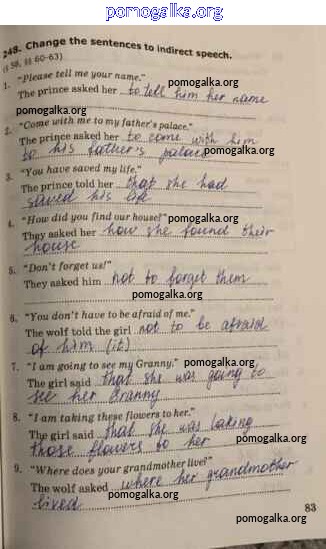 pomogalka.org
248. Change the sentences to indirect speech.
(§ 59, §§ 60-63)
1. "Please tell me your name."
pomogalka.org
The prince asked her to tell him her name
pomogalka.org
2. "Come with me to my father's palace."
The prince asked her to come with him
to his father's palace pomogalka.org
3. "You have saved my life."
The prince told her that she had
saved his life
4. "How did you find our house?" pomogalka.org
They asked her how she found their
house
pomogalka.org
5. "Don't forget us!"
They asked him not to forget them
pomogalka.org
6. "You don't have to be afraid of me."
The wolf told the girl not to be afraid
of him (it)
7. "I am going to see my Granny." pomogalka.org
The girl said that she was going to
see her Granny
pomogalka.org
8. "I am taking these flowers to her."
The girl said that she was taking
those flowers to her pomogalka.org
9. "Where does your grandmother live?"
The wolf asked where her grandmother
pomogalka.org
lived
83
pomogalka.org
pomogalka.org